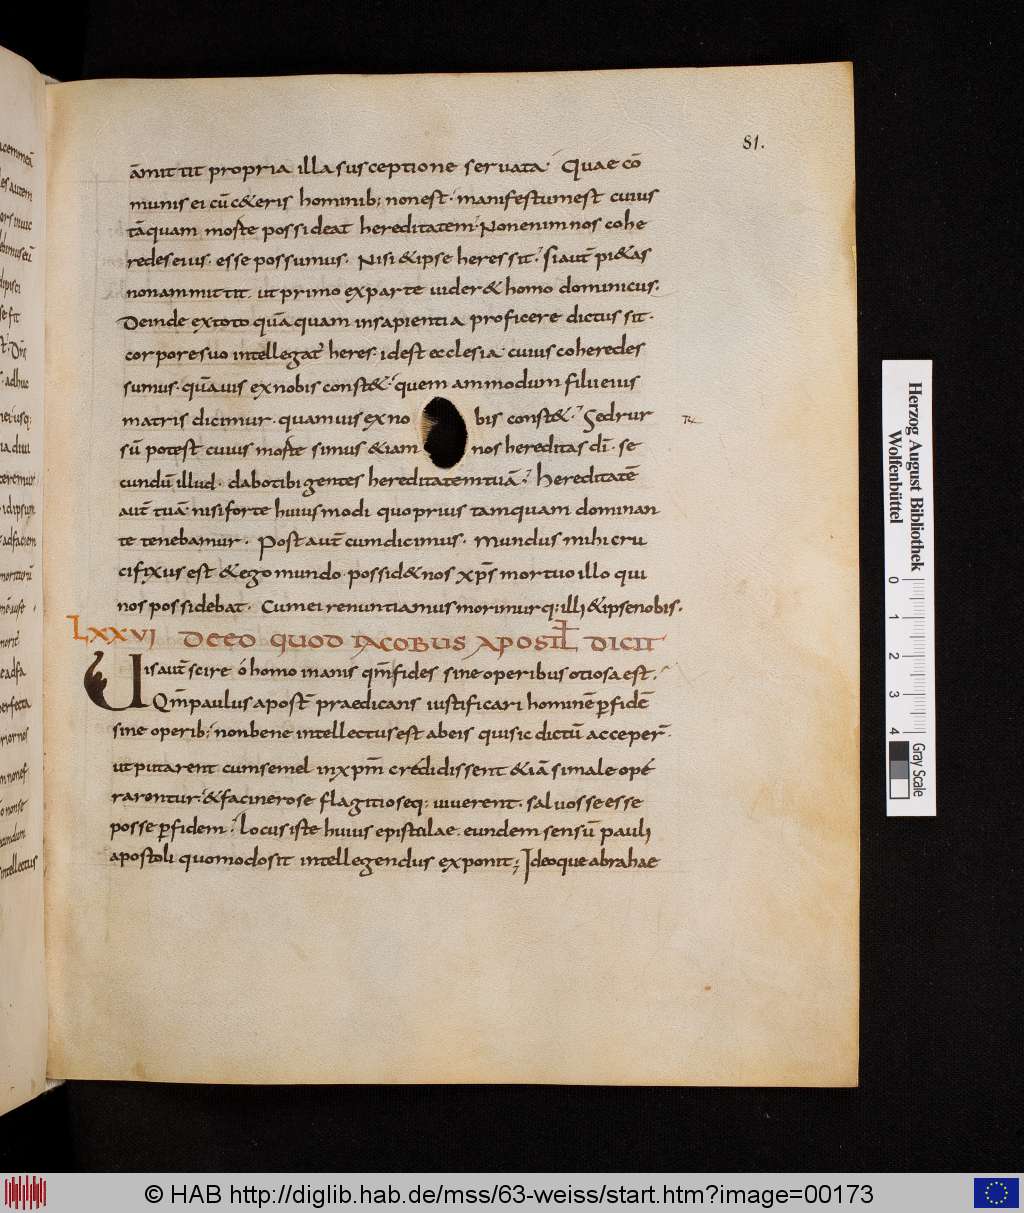 81.
āmittit propria illa susceptione seruata· Quae cō
munis ei cū c&eris hominib; non est· manifestum est cuius
tāquam moste possideat hereditatem· Non enim nos cohe
redes eius· esse possumus· Nisi & ipse heres sit· si aut̄ pi&as
non ammittit· ut primo ex parte uider& homo dominicus·
Deinde ex toto quāquam in sapientia proficere dictus sit·
corpore suo intellegat̄ heres· id est ecclesia· cuius coheredes
sumus· quāuis ex nobis const&· quem ammodum filii eius
matris dicimur· quamuis ex no bis const&· Sed rur
sū potest cuius moste simus & iam nos hereditas dī· se
cundū illud· dabo tibi gentes hereditatem tuā· Hereditatē
aut̄ tuā nisi forte huiusmodi quo prius tamquam dominan
te tenebamur· Post aut̄ cum dicimus· Mundus mihi cru
cifixus est & ego mundo· possid& nos xp̄s mortuo illo qui
nos possidebat· Cum ei renuntiamus morimur q; illi & ipse nobis·
LXXVI DE EO QUOD IACOBUS APOSTL̄ DICIT
Uis aut̄ scire ó homo inanis qm̄ fides sine operibus otiosa est·
Qm̄ paulus apost̄ praedicans iustificari hominē p̄ fidē
sine operib; non bene intellectus est ab eis qui sic dictū acceper̄·
ut putarent cum semel in xp̄m credidissent & iā si male opé
rarentur· & facinerose flagitioseq; uiuerent· saluos se esse
posse p̄ fidem· Locus iste huius epistulae· eundem sensū pauli
apostoli quomodo sit intellegendus exponit; Ideoque abrahae
Herzog August Bibliothek
Wolfenbüttel
0 1 2 3 4
Gray Scale
© HAB http://diglib.hab.de/mss/63-weiss/start.htm?image=00173